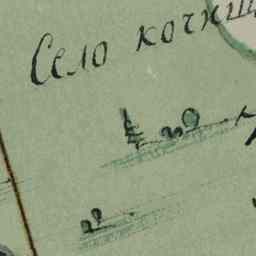 Село кочиш